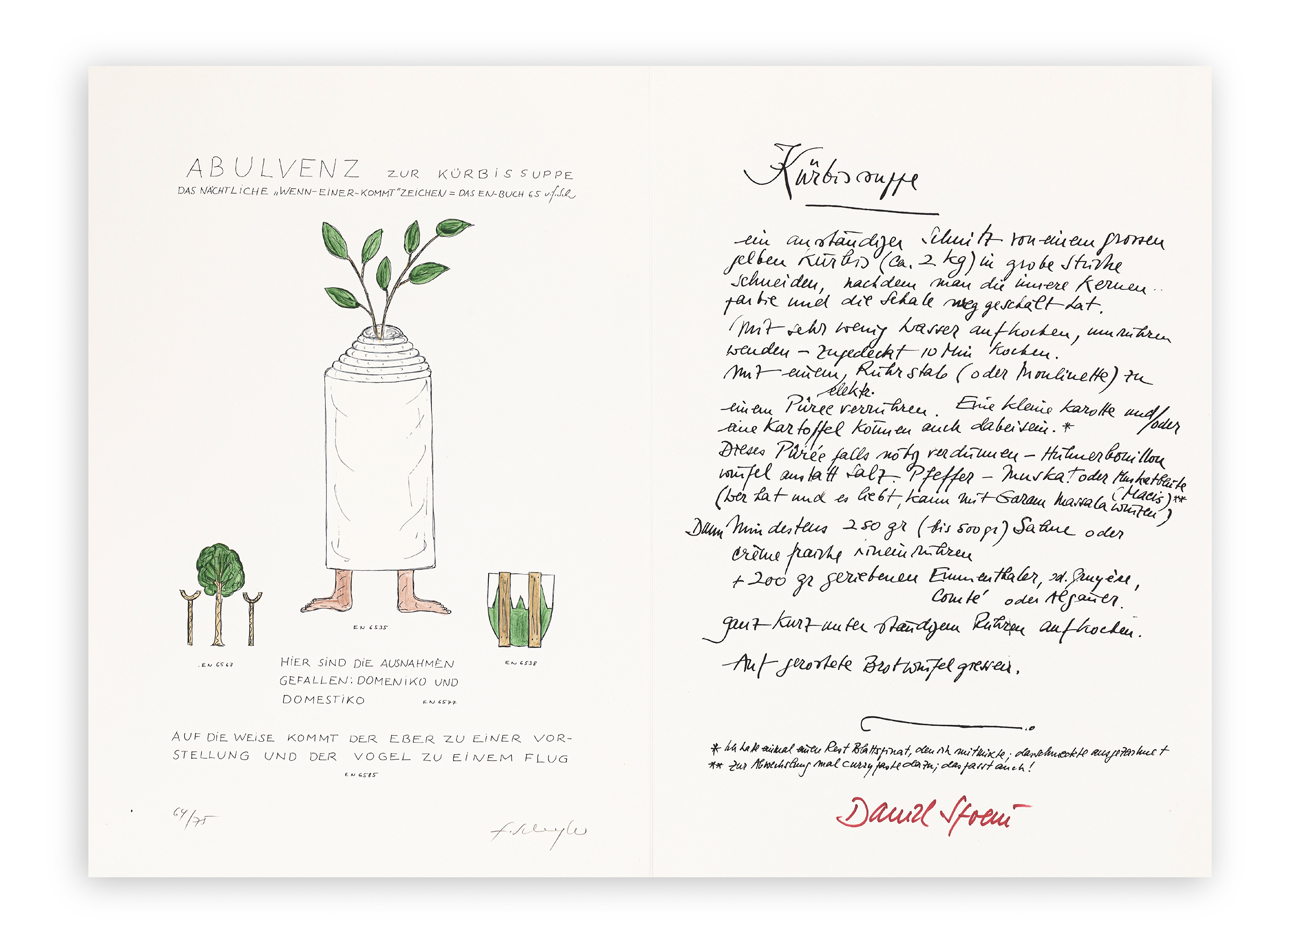 ABULVENZ ZUR KÜRBISSUPPE
DAS NÄCHTLICHE „WENN-EINER-KOMMT" ZEICHEN = DAS EN-BUCH 65
EN 6535
EN 6563
EN 6538
HIER SIND DIE AUSNAHMEN
GEFALLEN: DOMENIKO UND
DOMESTIKO
AUF DIE WEISE KOMMT DER EBER ZU EINER VOR-
STELLUNG UND DER VOGEL ZU EINEM FLUG
EN 6585
64/75
Kürbissuppe
ein anständiger Schnitz von einem grossen
gelben Kürbis (ca. 2 kg) in grobe Stücke
schneiden, nachdem man die innere Kernen-
partie und die Schale weg geschält hat.
Mit sehr wenig Wasser aufkochen, umrühren
wenden – zugedeckt 10 Min kochen.
Mit einem Rührstab (oder Moulinette) zu
elektr.
einem Pürée verrühren. Eine kleine Karotte und/oder
eine Kartoffel können auch dabei sein. *
Dieses Pürée falls nötig verdünnen – Hühnerbouillon
würfel anstatt Salz. Pfeffer – Muskat oder Muskatblüte
(Macis) **
(wer hat und es liebt, kann mit Garam Massala würzen)
Dann Mindestens 250 gr (bis 500 gr) Sahne oder
crème fraiche hineinrühren
+ 200 gr geriebenen Emmenthaler, od. Gruyère,
Comté oder Algäuer.
ganz kurz unter ständigem Rühren aufkochen.
Auf geröstete Brotwürfel giessen.
* Ich hatte einmal einen Rest Blattspinat, den ich mitmixte; das schmeckte ausgezeichnet
** zur Abwechslung mal Currypaste dazu; das passt auch!
Daniel Spoerri